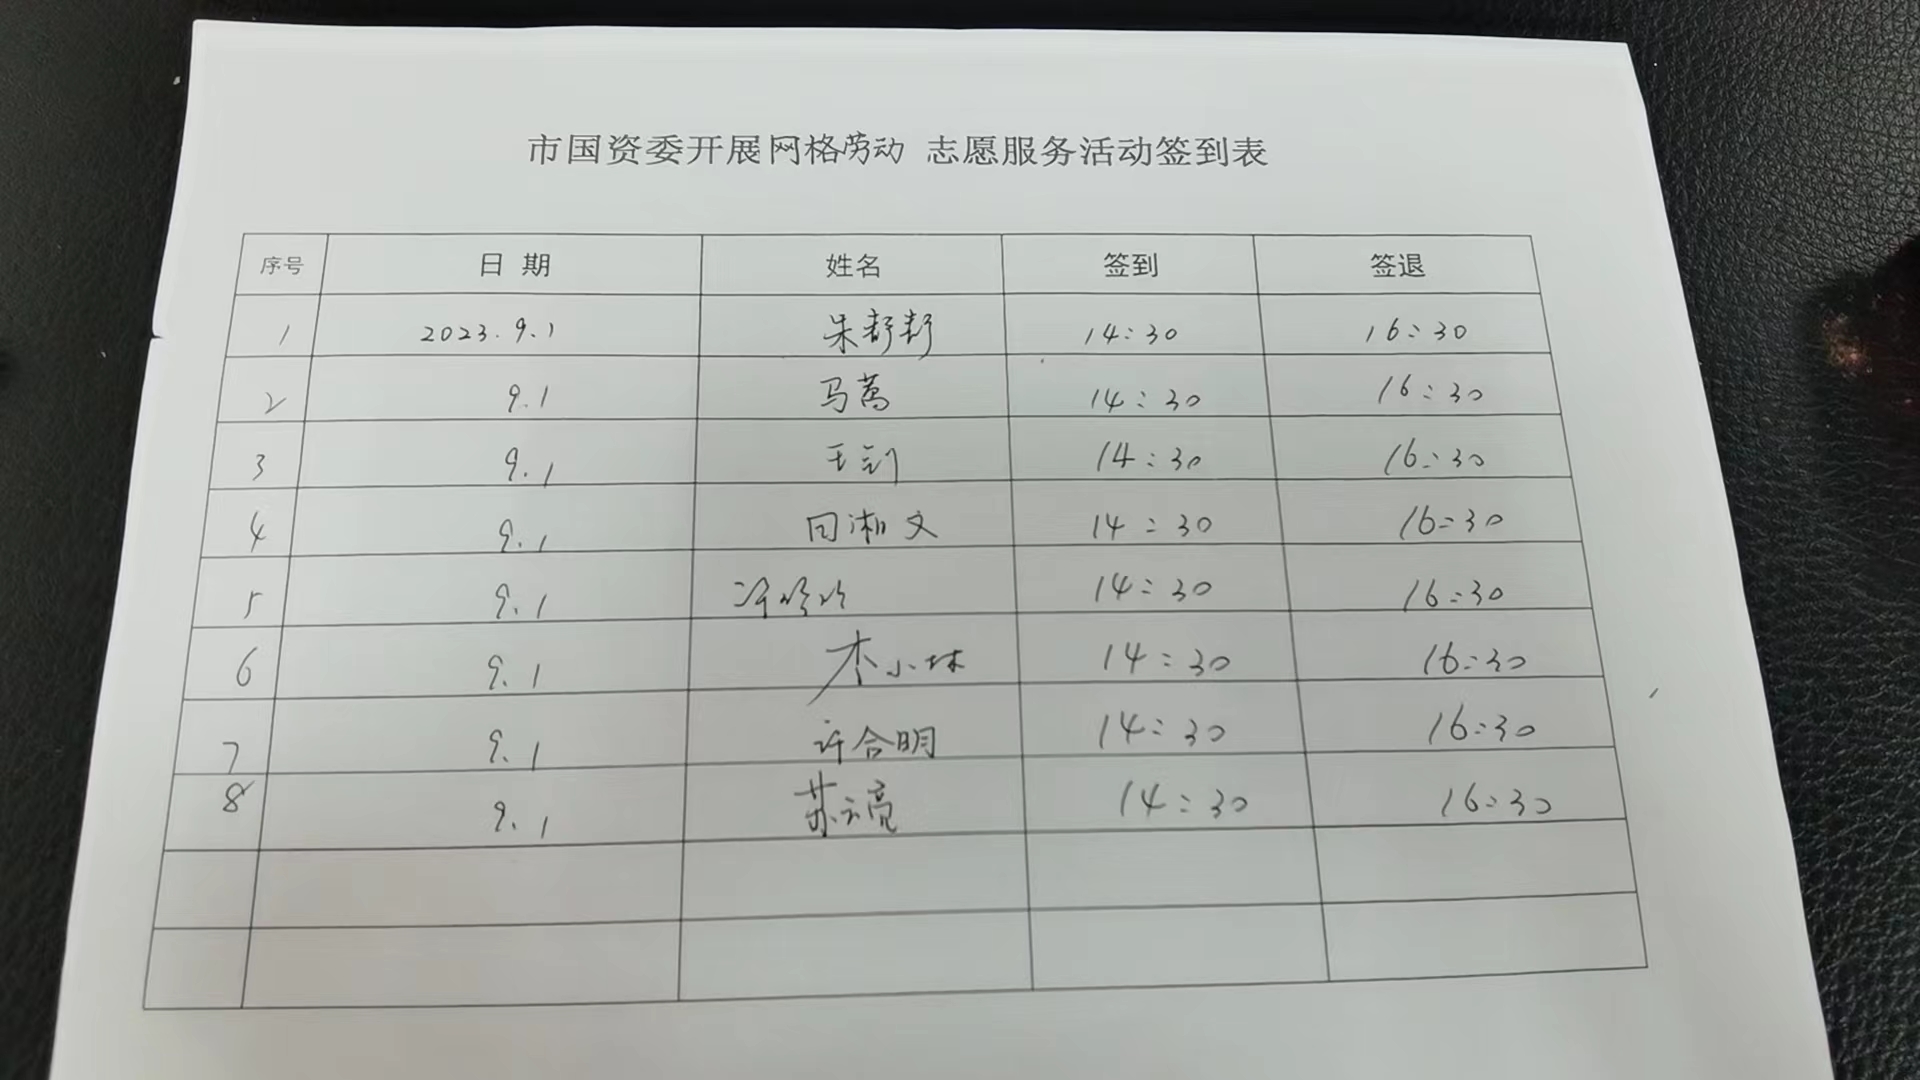 市国资委开展网格劳动 志愿服务活动签到表
序号 日 期 姓名 签到 签退
1 2023.9.1 朱舒舒 14:30 16:30
2 9.1 马蒿 14:30 16:30
3 9.1 王钊 14:30 16:30
4 9.1 田湘文 14:30 16:30
5 9.1 14:30 16:30
6 9.1 李小林 14:30 16:30
7 9.1 许合明 14:30 16:30
8 9.1 苏云亮 14:30 16:30